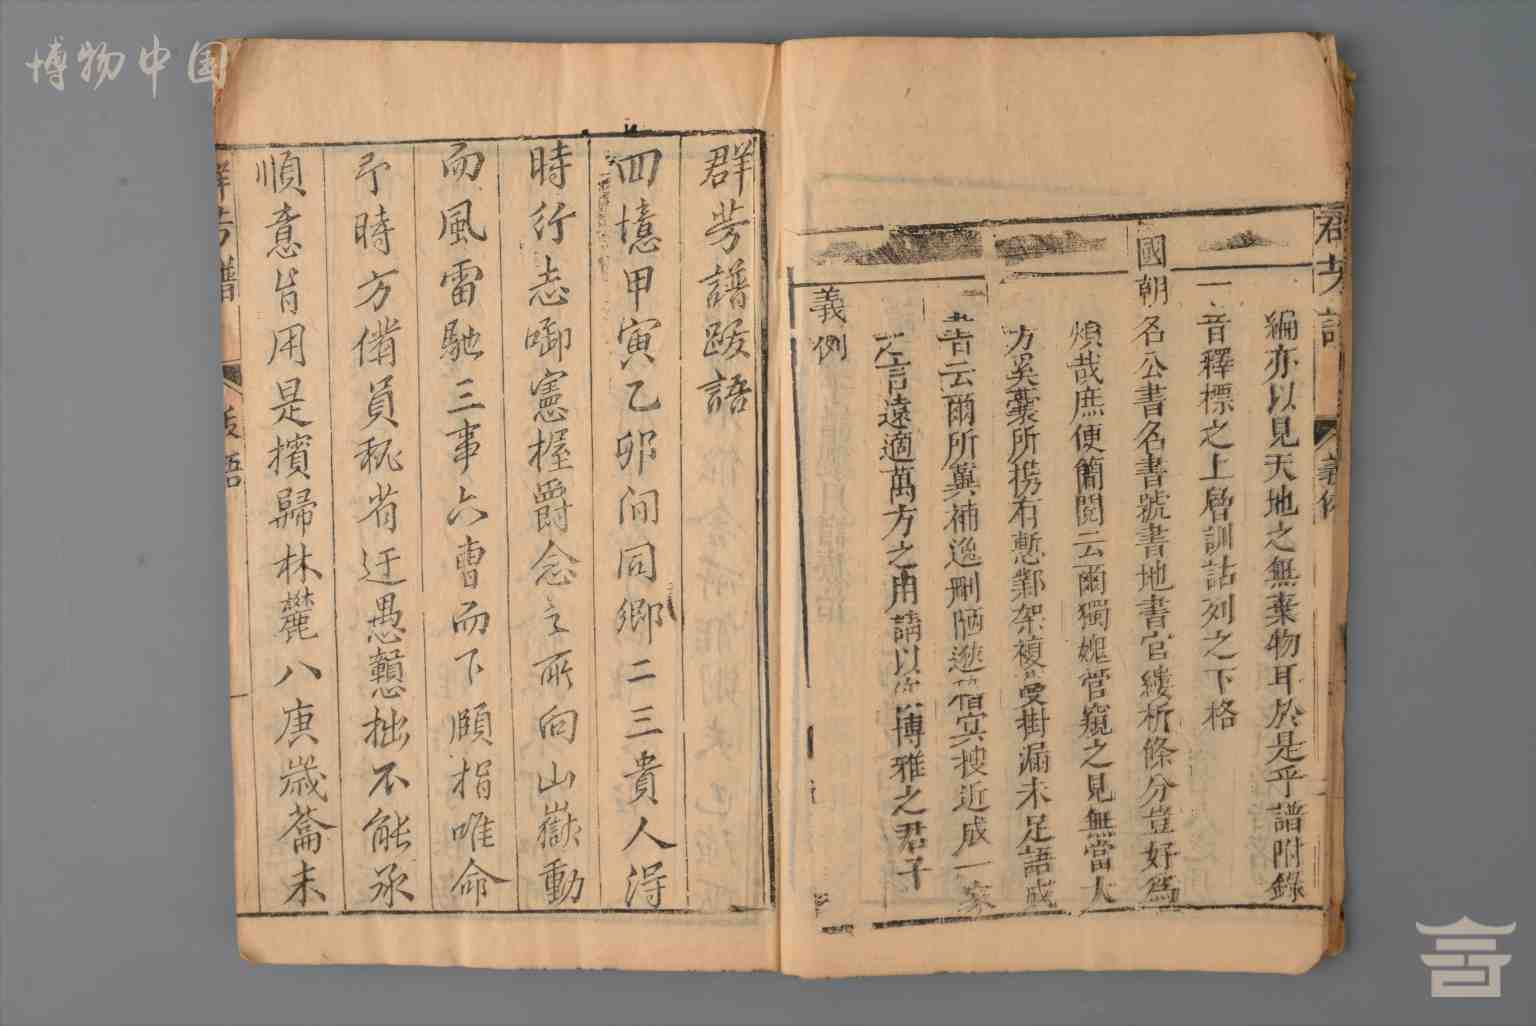 博物中国
群芳譜
義例
編亦以見天地之無棄物耳於是乎譜附錄
一音釋標之上層訓詁列之下格
國朝名公書名書號書地書官縷析條分豈好為
煩哉庶便簡閱云爾獨媿管窺之見無當大
方奚囊所携有慙鄴架複
掛漏未足語成
書云爾所冀補逸刪陋
搜近成一家
之言遠適萬方之用請以
博雅之君子
義例
群芳譜跋語
四憶甲寅乙卯间同鄉二三貴人得
時行志啣憲握爵念之所向山嶽動
而風雷馳三事六曹而下頤指唯命
予時方備員秘省迂愚戇拙不能承
順意旨用是擯歸林麓八庚歲籥未
群芳譜
跋語